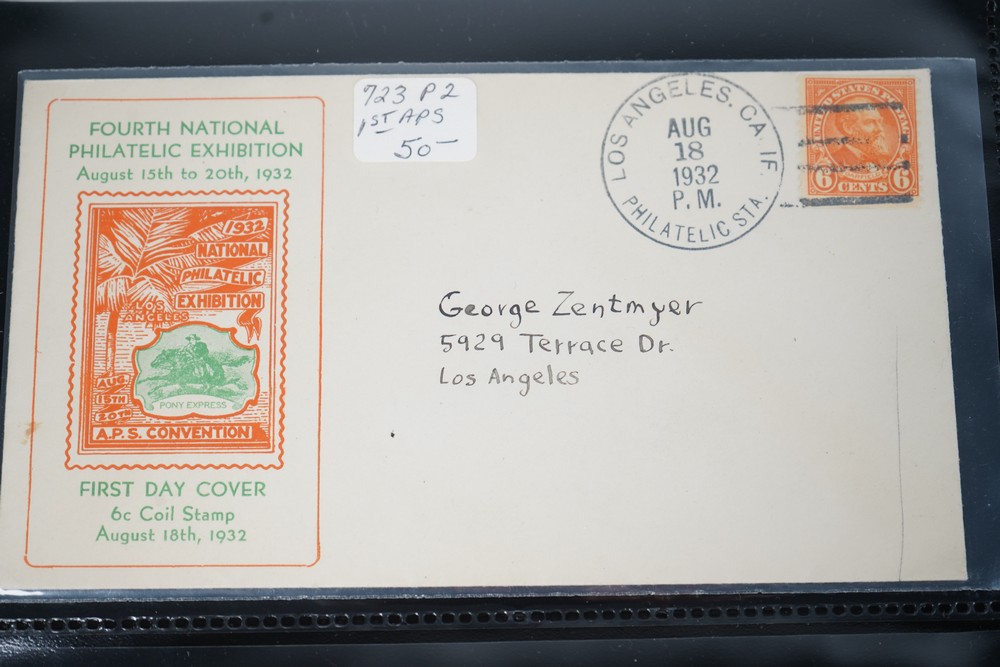 FOURTH NATIONAL
PHILATELIC EXHIBITION
August 15th to 20th, 1932
1932
NATIONAL
PHILATELIC
EXHIBITION
LOS
ANGELES
PONY EXPRESS
AUG.
15TH
20TH
A.P.S. CONVENTION
FIRST DAY COVER
6c Coil Stamp
August 18th, 1932
723 P2
1ST APS
50-
LOS ANGELES, CALIF.
AUG
18
1932
P. M.
PHILATELIC STA.
UNITED STATES POSTAGE
6 CENTS 6
George Zentmyer
5929 Terrace Dr.
Los Angeles